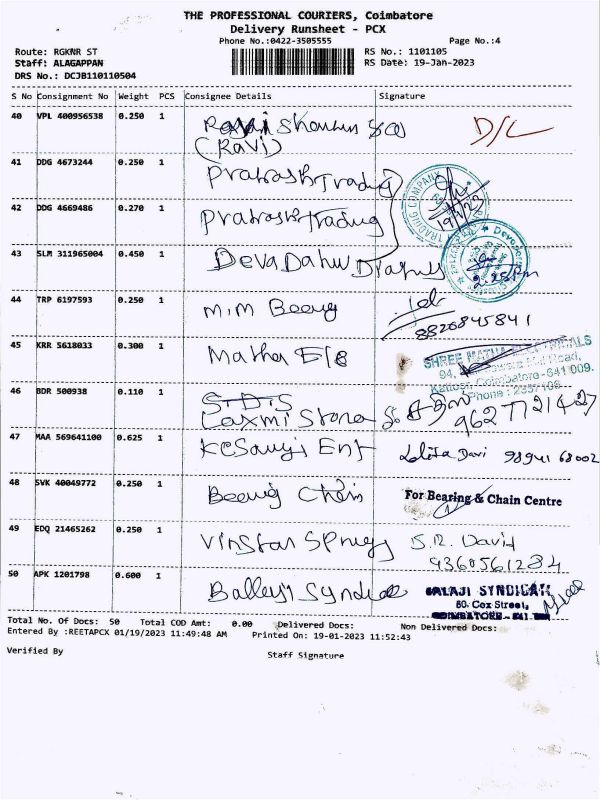 THE PROFESSIONAL COURIERS, Coimbatore
Delivery Runsheet - PCX
Phone No.:0422-3505555 Page No.:4
Route: RGKNR ST RS No.: 1101105
Staff: ALAGAPPAN RS Date: 19-Jan-2023
DRS No.: DCJB110110504
S No Consignment No Weight PCS Consignee Details Signature
40 VPL 400956538 0.250 1 D/L
(Ravi)
41 DDG 4673244 0.250 1 Prakash Trading
42 DDG 4669486 0.270 1 Prakash Trading
TRADING COMPANY
19/1/23
43 SLM 311965004 0.450 1
44 TRP 6197593 0.250 1 M.M Beeng
8826845841
45 KRR 5618033 0.300 1 Matha E/B
SHREE MATHA ELECTRICALS
Road,
Kattoor, Coimbatore - 641 009.
Phone : 2357106
46 BDR 500938 0.110 1 S.D.S
Laxmi Stores
47 MAA 569641100 0.625 1 Kesavji Ent Lalita Davi 98941 68002
48 SVK 40049772 0.250 1 Beeng Chein For Bearing & Chain Centre
49 EDQ 21465262 0.250 1 Vinstar S.R. David
9360561284
50 APK 1201798 0.600 1 Balleji Syndicate
BALAJI SYNDICATE
80. Cox Street,
COIMBATORE - 641
Total No. Of Docs: 50 Total COD Amt: 0.00 Delivered Docs: Non Delivered Docs:
Entered By :REETAPCX 01/19/2023 11:49:48 AM Printed On: 19-01-2023 11:52:43
Verified By Staff Signature